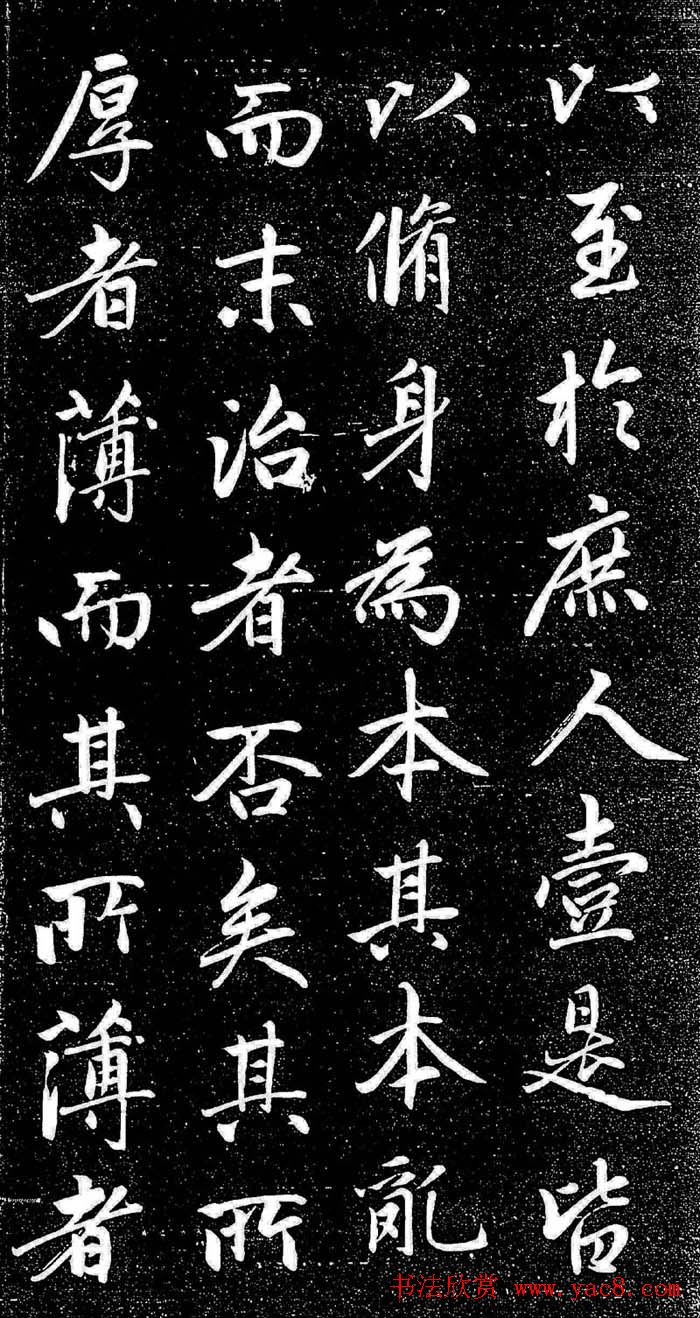 以至於庶人壹是皆
以脩身為本其本亂
而末治者否矣其所
厚者薄而其所薄者
书法欣赏 www.yac8.com